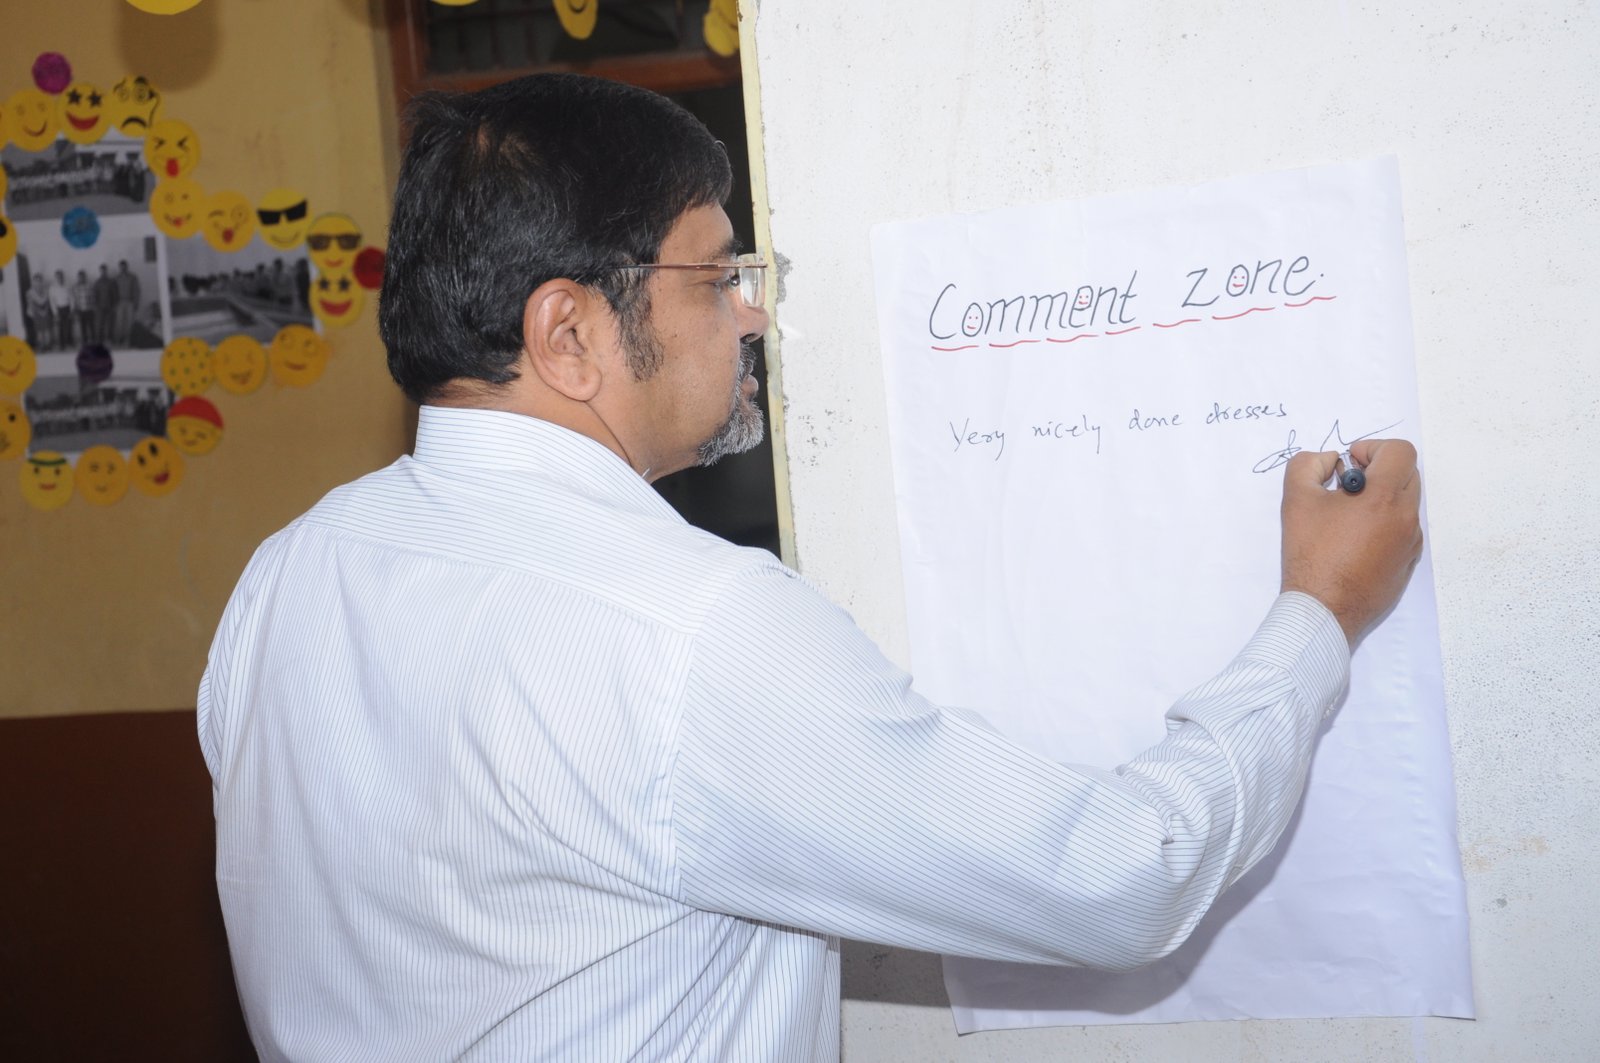 Comment zone.
Very nicely done dresses